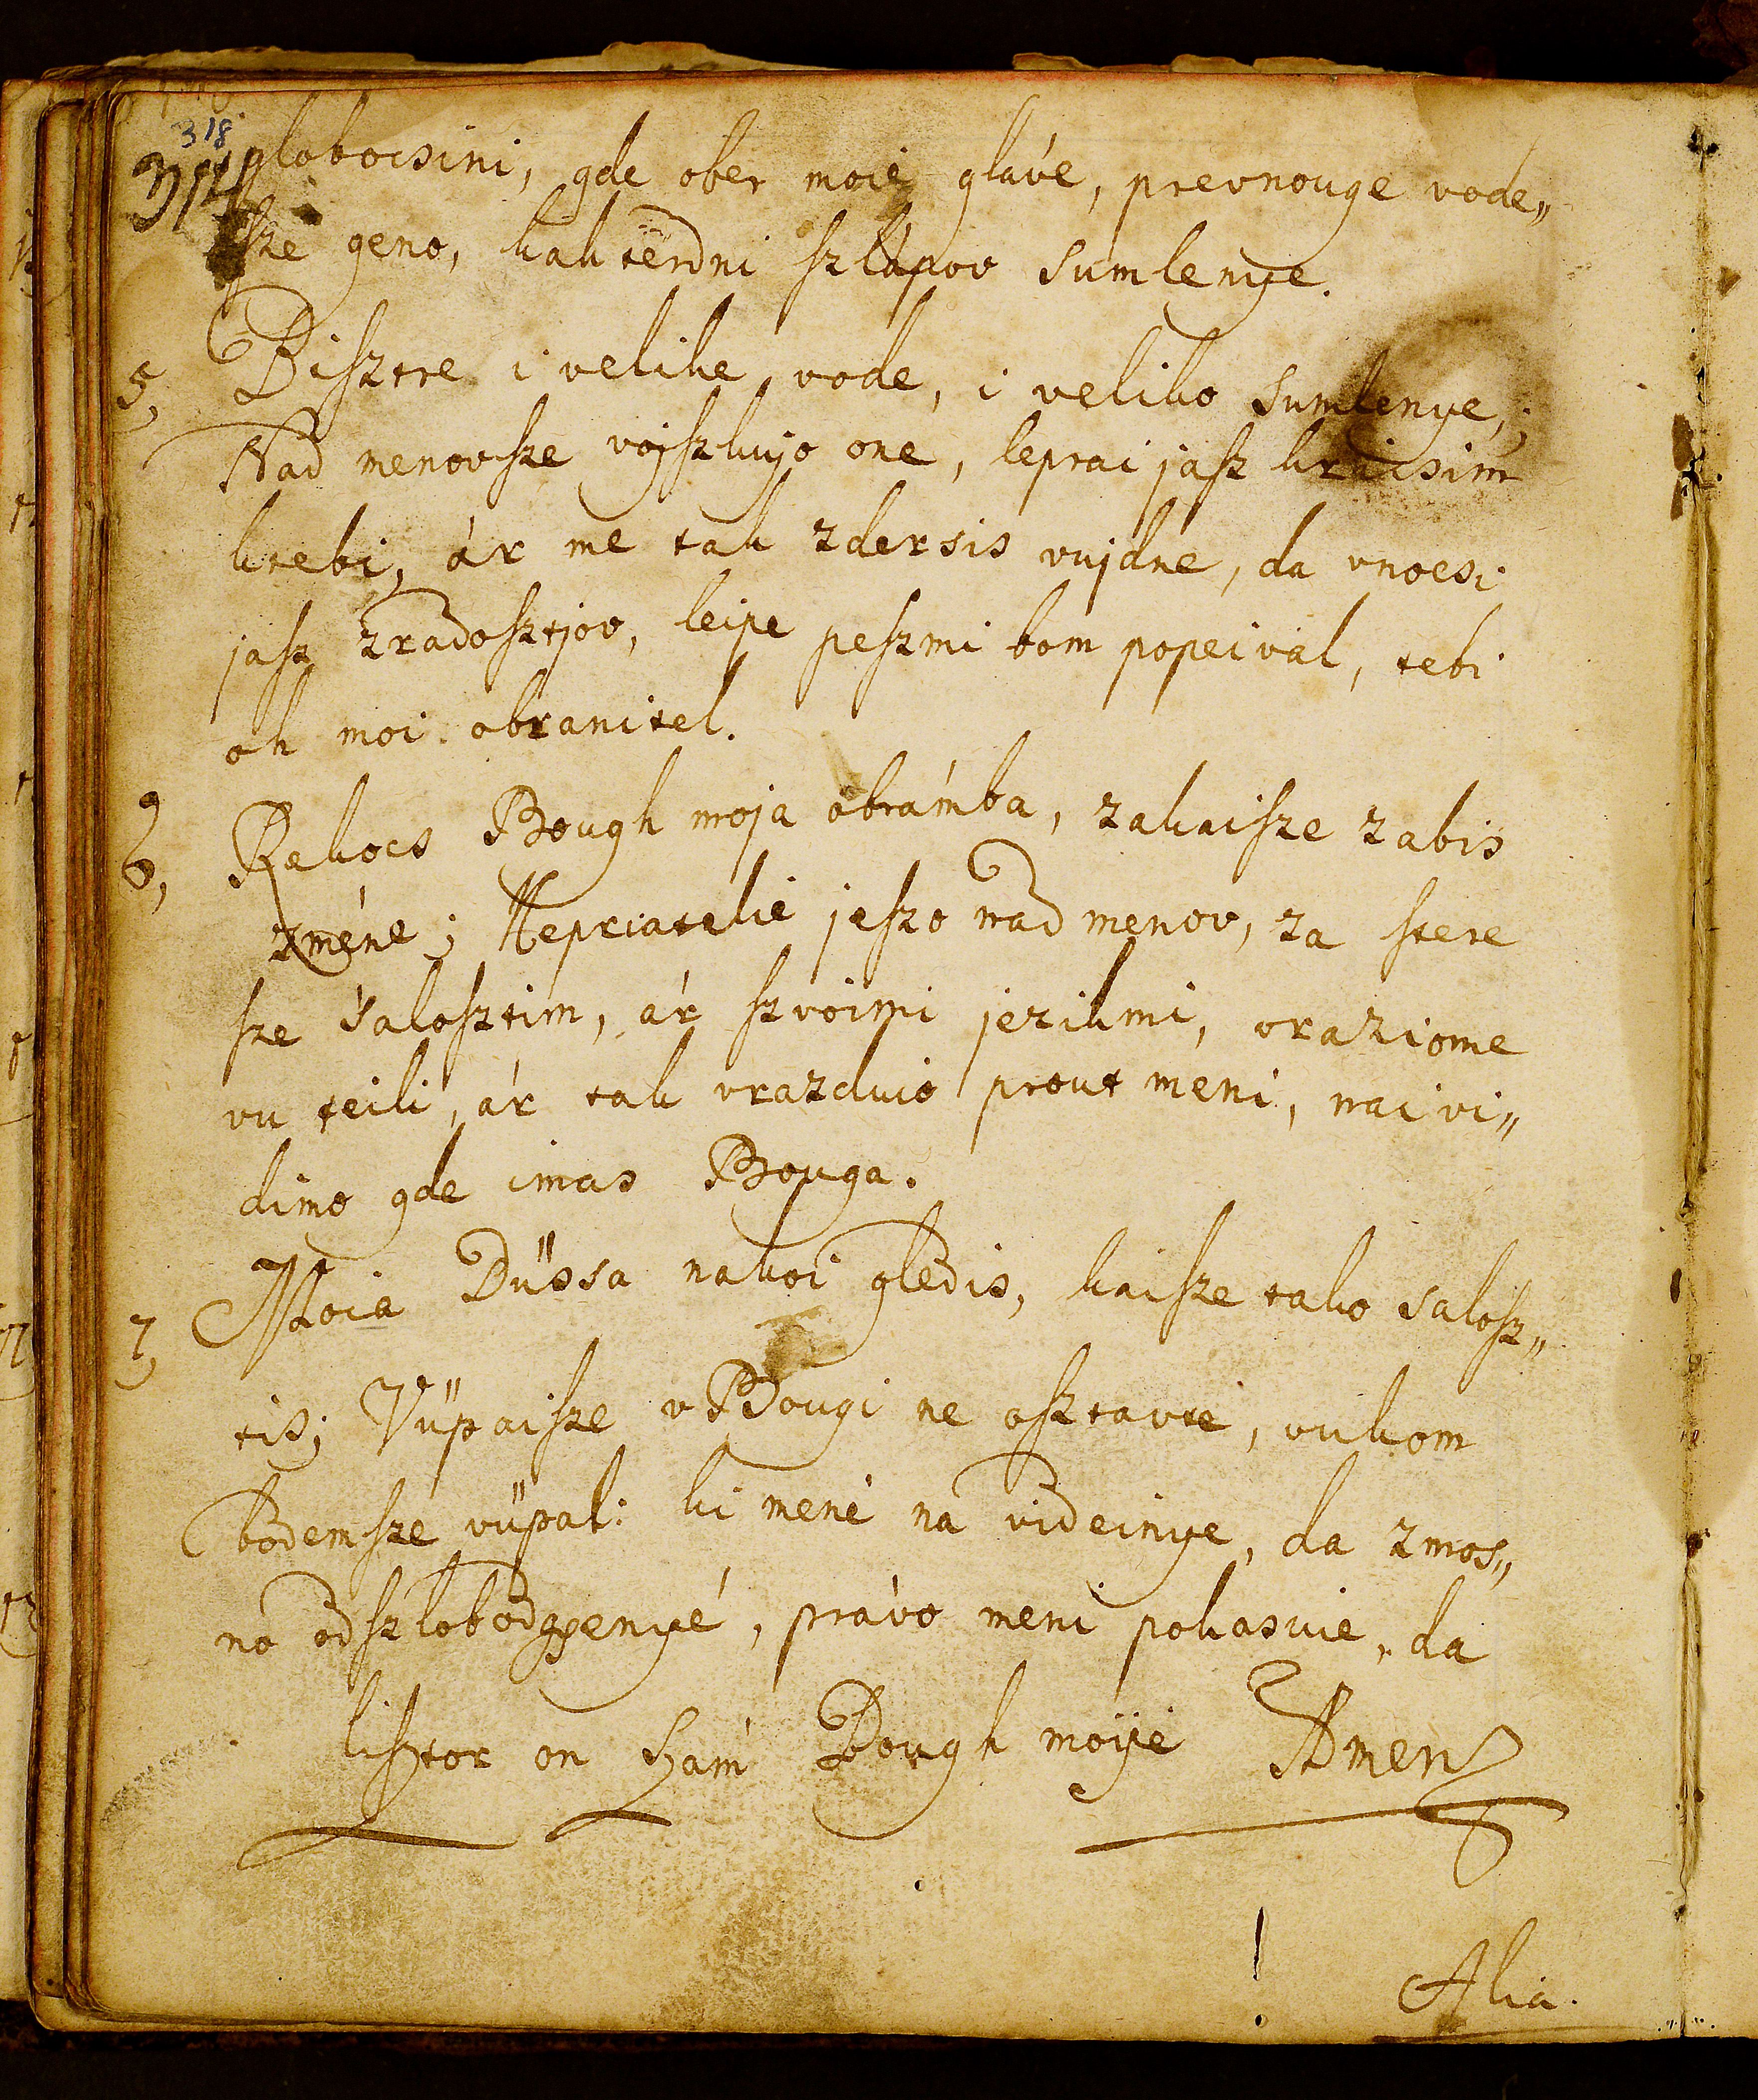 318
314
globocsini, gde ober moie gláve, prevnouge vode„
sze geno, kak terdni szlápov sumlenye.
5, Bisztre i velike vode, i veliko sumlenye,
Nad menovsze vojszkujo one, leprai jasz kricsim
ktebi, ár me tak zdersis vujdne, da vnocsi
jasz zradosztjov, leipe peszmi bom popeival, tebi
oh moi obranitel.
6, Rekocs Bough moja obrámba, zakaisze zabis
zméne; Nepriatelie jeszo nad menov, za stere
sze salosztim, ár szvoimi jezikmi, vraziome
vu teili, ár tak vrazduio prout meni, nai vi„
dimo gde imas Bouga.
7, Moia Düssa nakoi gledis, kaisze tako salosz„
tis; Vüpaisze vBougi ne osztavte, vukom
bodemsze vüpal: ki mené na videinye, da zmos„
no odszlobodgyenyé, právo meni pokasuie, da
lisztor on szám Bough moije Amen
!
Alia.